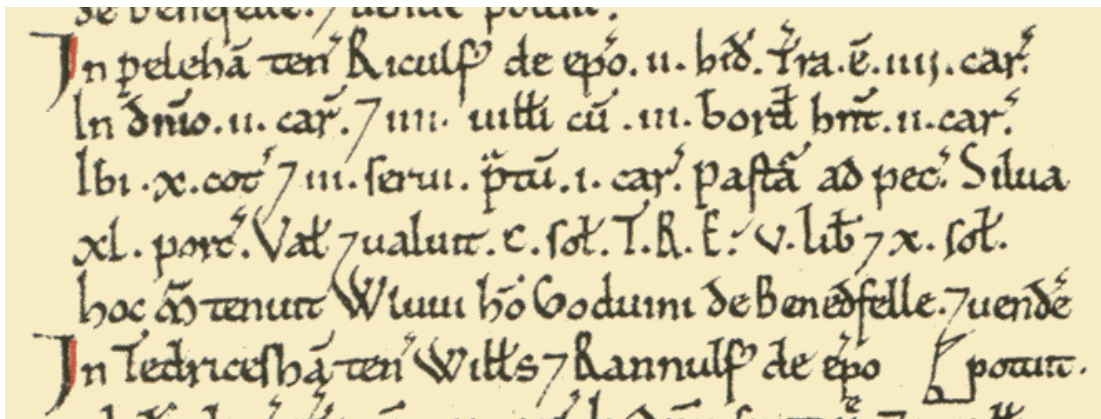 de Benefelle. ⁊ uende potuit.
In peleha̅ ten̅ Riculf᾽ de ep̅o. ii. hid̅. T̅ra. e̅. iiij. car̅.
In d̅nio. ii. car̅. ⁊ iiii. uilł̅i cu̅. iii. bord̅ hn̅t. ii. car̅.
Ibi. x. cot̅ ⁊ iii. serui. p̅tu̅. i. car̅. Pasta̅ ad pec̅. Silua
xl. porc̅. Val̅ ⁊ ualuit. c. sol̅. T. R. E. v. lib̅ ⁊ x. sol̅.
hoc M̅ tenuit Wluui ho̅ Goduini de Benedfelle. ⁊ uende̅
In Tedricesha̅ ten̅ Will̅s ⁊ Rannulf᾽ de ep̅o potuit.